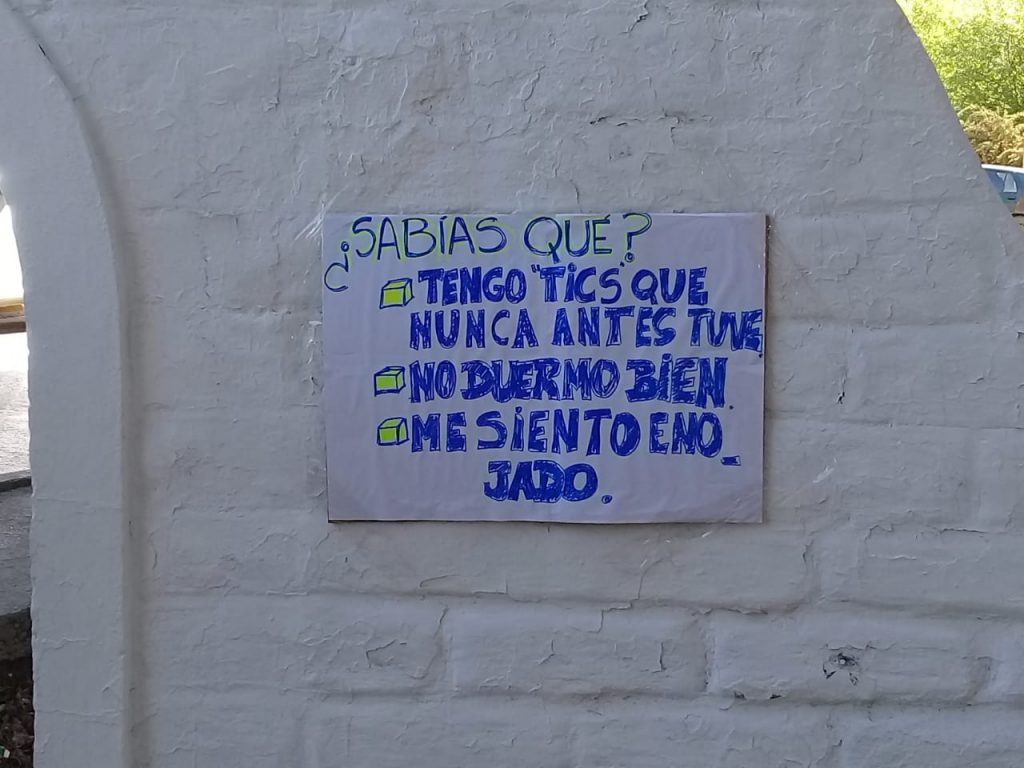 ¿SABÍAS QUÉ?
TENGO "TICS" QUE
NUNCA ANTES TUVE.
NO DUERMO BIEN.
ME SIENTO ENO_
JADO.